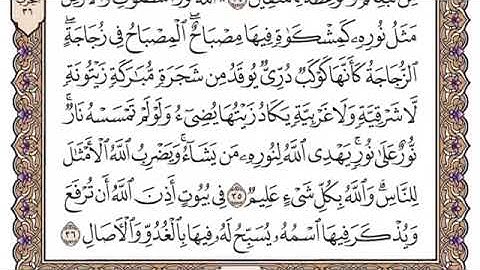 ٣٦
مَثَلُ نُورِهِۦ كَمِشْكَوٰةٍ فِيهَا مِصْبَاحٌ ۖ ٱلْمِصْبَاحُ فِى زُجَاجَةٍ ۖ
ٱلزُّجَاجَةُ كَأَنَّهَا كَوْكَبٌ دُرِّىٌّ يُوقَدُ مِن شَجَرَةٍ مُّبَٰرَكَةٍ زَيْتُونَةٍ
لَّا شَرْقِيَّةٍ وَلَا غَرْبِيَّةٍ يَكَادُ زَيْتُهَا يُضِىٓءُ وَلَوْ لَمْ تَمْسَسْهُ نَارٌ ۚ
نُّورٌ عَلَىٰ نُورٍ ۗ يَهْدِى ٱللَّهُ لِنُورِهِۦ مَن يَشَآءُ ۚ وَيَضْرِبُ ٱللَّهُ ٱلْأَمْثَٰلَ
لِلنَّاسِ ۗ وَٱللَّهُ بِكُلِّ شَىْءٍ عَلِيمٌ ٣٥ فِى بُيُوتٍ أَذِنَ ٱللَّهُ أَن تُرْفَعَ
وَيُذْكَرَ فِيهَا ٱسْمُهُۥ يُسَبِّحُ لَهُۥ فِيهَا بِٱلْغُدُوِّ وَٱلْءَاصَالِ ٣٦